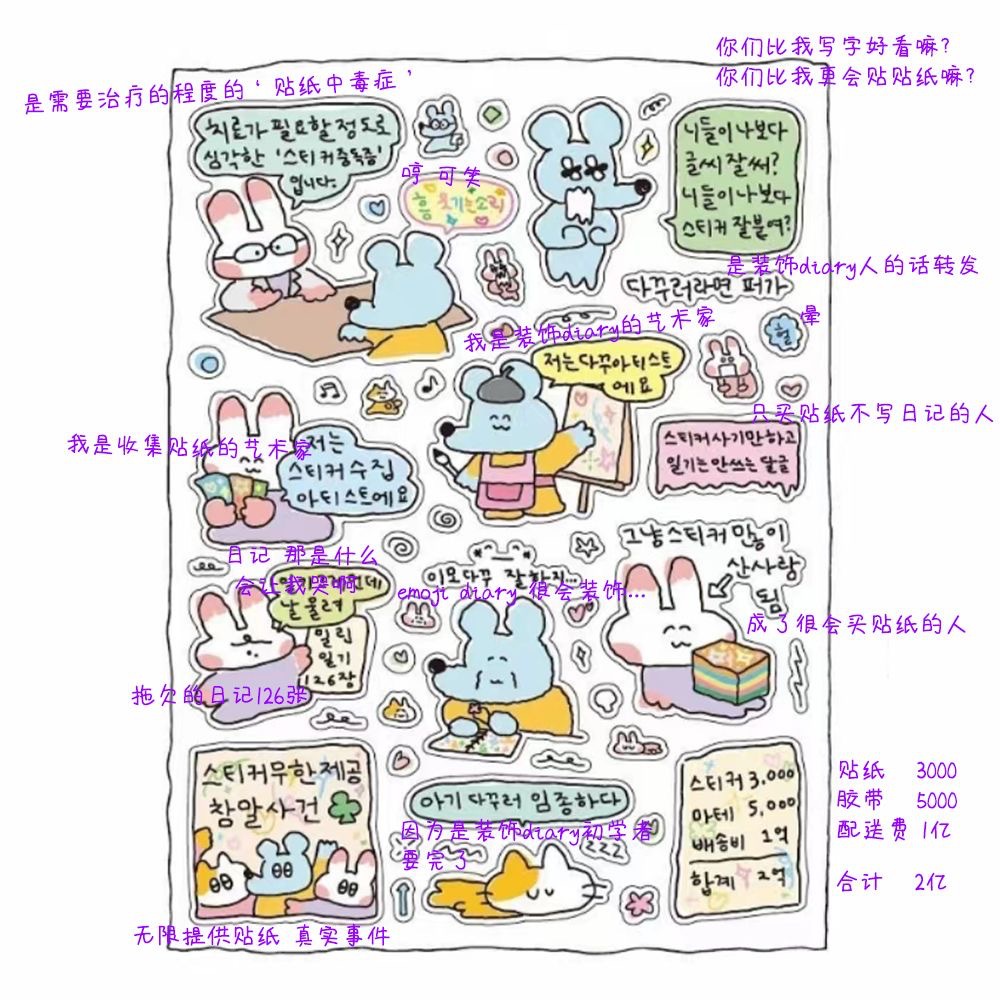 你们比我写字好看嘛?
你们比我更会贴贴纸嘛?
是需要治疗的程度的 ' 贴纸中毒症 '
치료가 필요할 정도로
심각한 '스티커중독증'
입니다.
哼 可笑
흥 웃기는소리
니들이 나보다
글씨 잘써?
니들이 나보다
스티커 잘붙여?
是装饰diary人的话转发
다꾸러라면 퍼가
晕
헐
我是装饰diary的艺术家
저는 다꾸아티스트
에요
只买贴纸不写日记的人
스티커사기만하고
일기는 안쓰는 달글
我是收集贴纸的艺术家
저는
스티커수집
아티스트에요
그냥스티커 만능이
산사람
됨
日记 那是什么
会让我哭啊
날 울려
밀린
일기
126장
이모다꾸 잘하지...
emoji diary 很会装饰...
成了很会买贴纸的人
拖欠的日记126张
스티커무한제공
참말사건
아기 다꾸러 임종하다
因为是装饰diary初学者
要完了
zzz
스티커 3,000
마테 5,000
배송비 1억
합계 2억
贴纸 3000
胶带 5000
配送费 1亿
合计 2亿
无限提供贴纸 真实事件